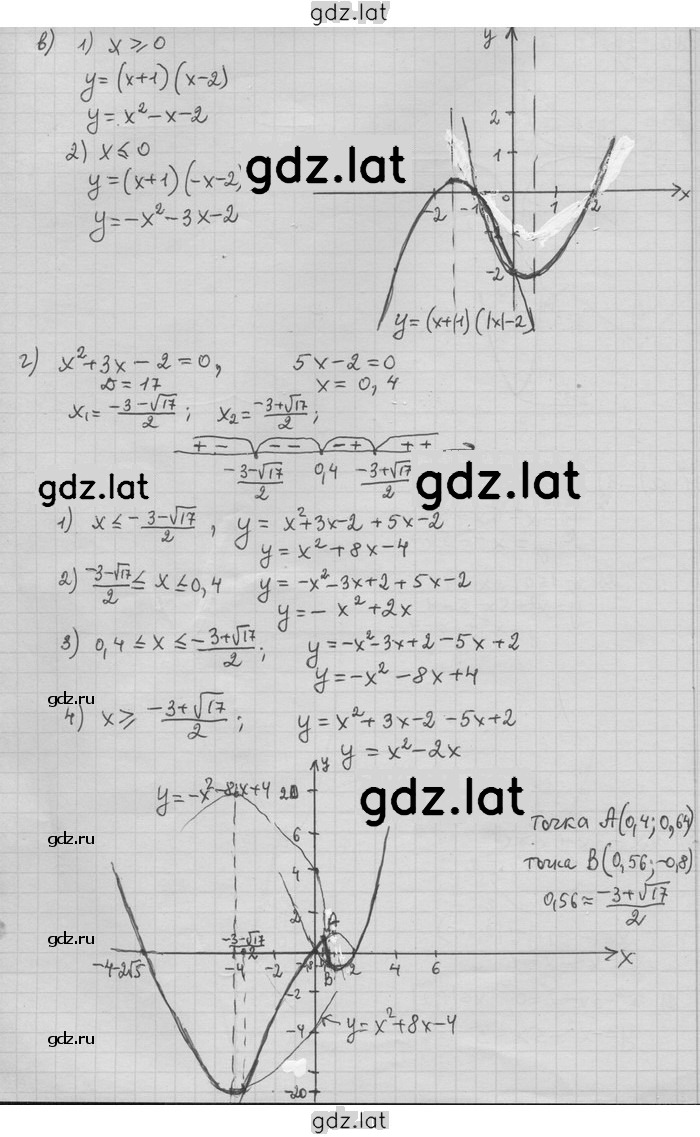 gdz.lat
в) 1) x ⩾ 0
y = (x+1)(x-2)
y = x² - x - 2
2) x ⩽ 0
y = (x+1)(-x-2)
y = -x² - 3x - 2
gdz.lat
y
2
1
-2 -1 0 1 2 x
-1
-2
y = (x+1)(|x|-2)
г) x² + 3x - 2 = 0, 5x - 2 = 0
D = 17 x = 0,4
x₁ = -3-√17/2 ; x₂ = -3+√17/2 ;
+ - - - - + + +
-3-√17/2 0,4 -3+√17/2
gdz.lat
gdz.lat
1) x ⩽ -3-√17/2 , y = x² + 3x - 2 + 5x - 2
y = x² + 8x - 4
2) -3-√17/2 ⩽ x ⩽ 0,4 y = -x² - 3x + 2 + 5x - 2
y = - x² + 2x
3) 0,4 ⩽ x ⩽ -3+√17/2 ; y = -x² - 3x + 2 - 5x + 2
y = -x² - 8x + 4
gdz.ru
4) x ⩾ -3+√17/2 ; y = x² + 3x - 2 - 5x + 2
y = x² - 2x
y
y = -x² - 8x + 4 20
gdz.lat
точка A(0,4; 0,64)
gdz.ru
6
точка B(0,56; -0,8)
4
0,56 ≈ -3+√17/2
2
A
gdz.ru
-3-√17/2
-4-2√5 -4 -2 B 2 4 6 x
-2
-4
y = x² + 8x - 4
gdz.ru
-20
gdz.lat